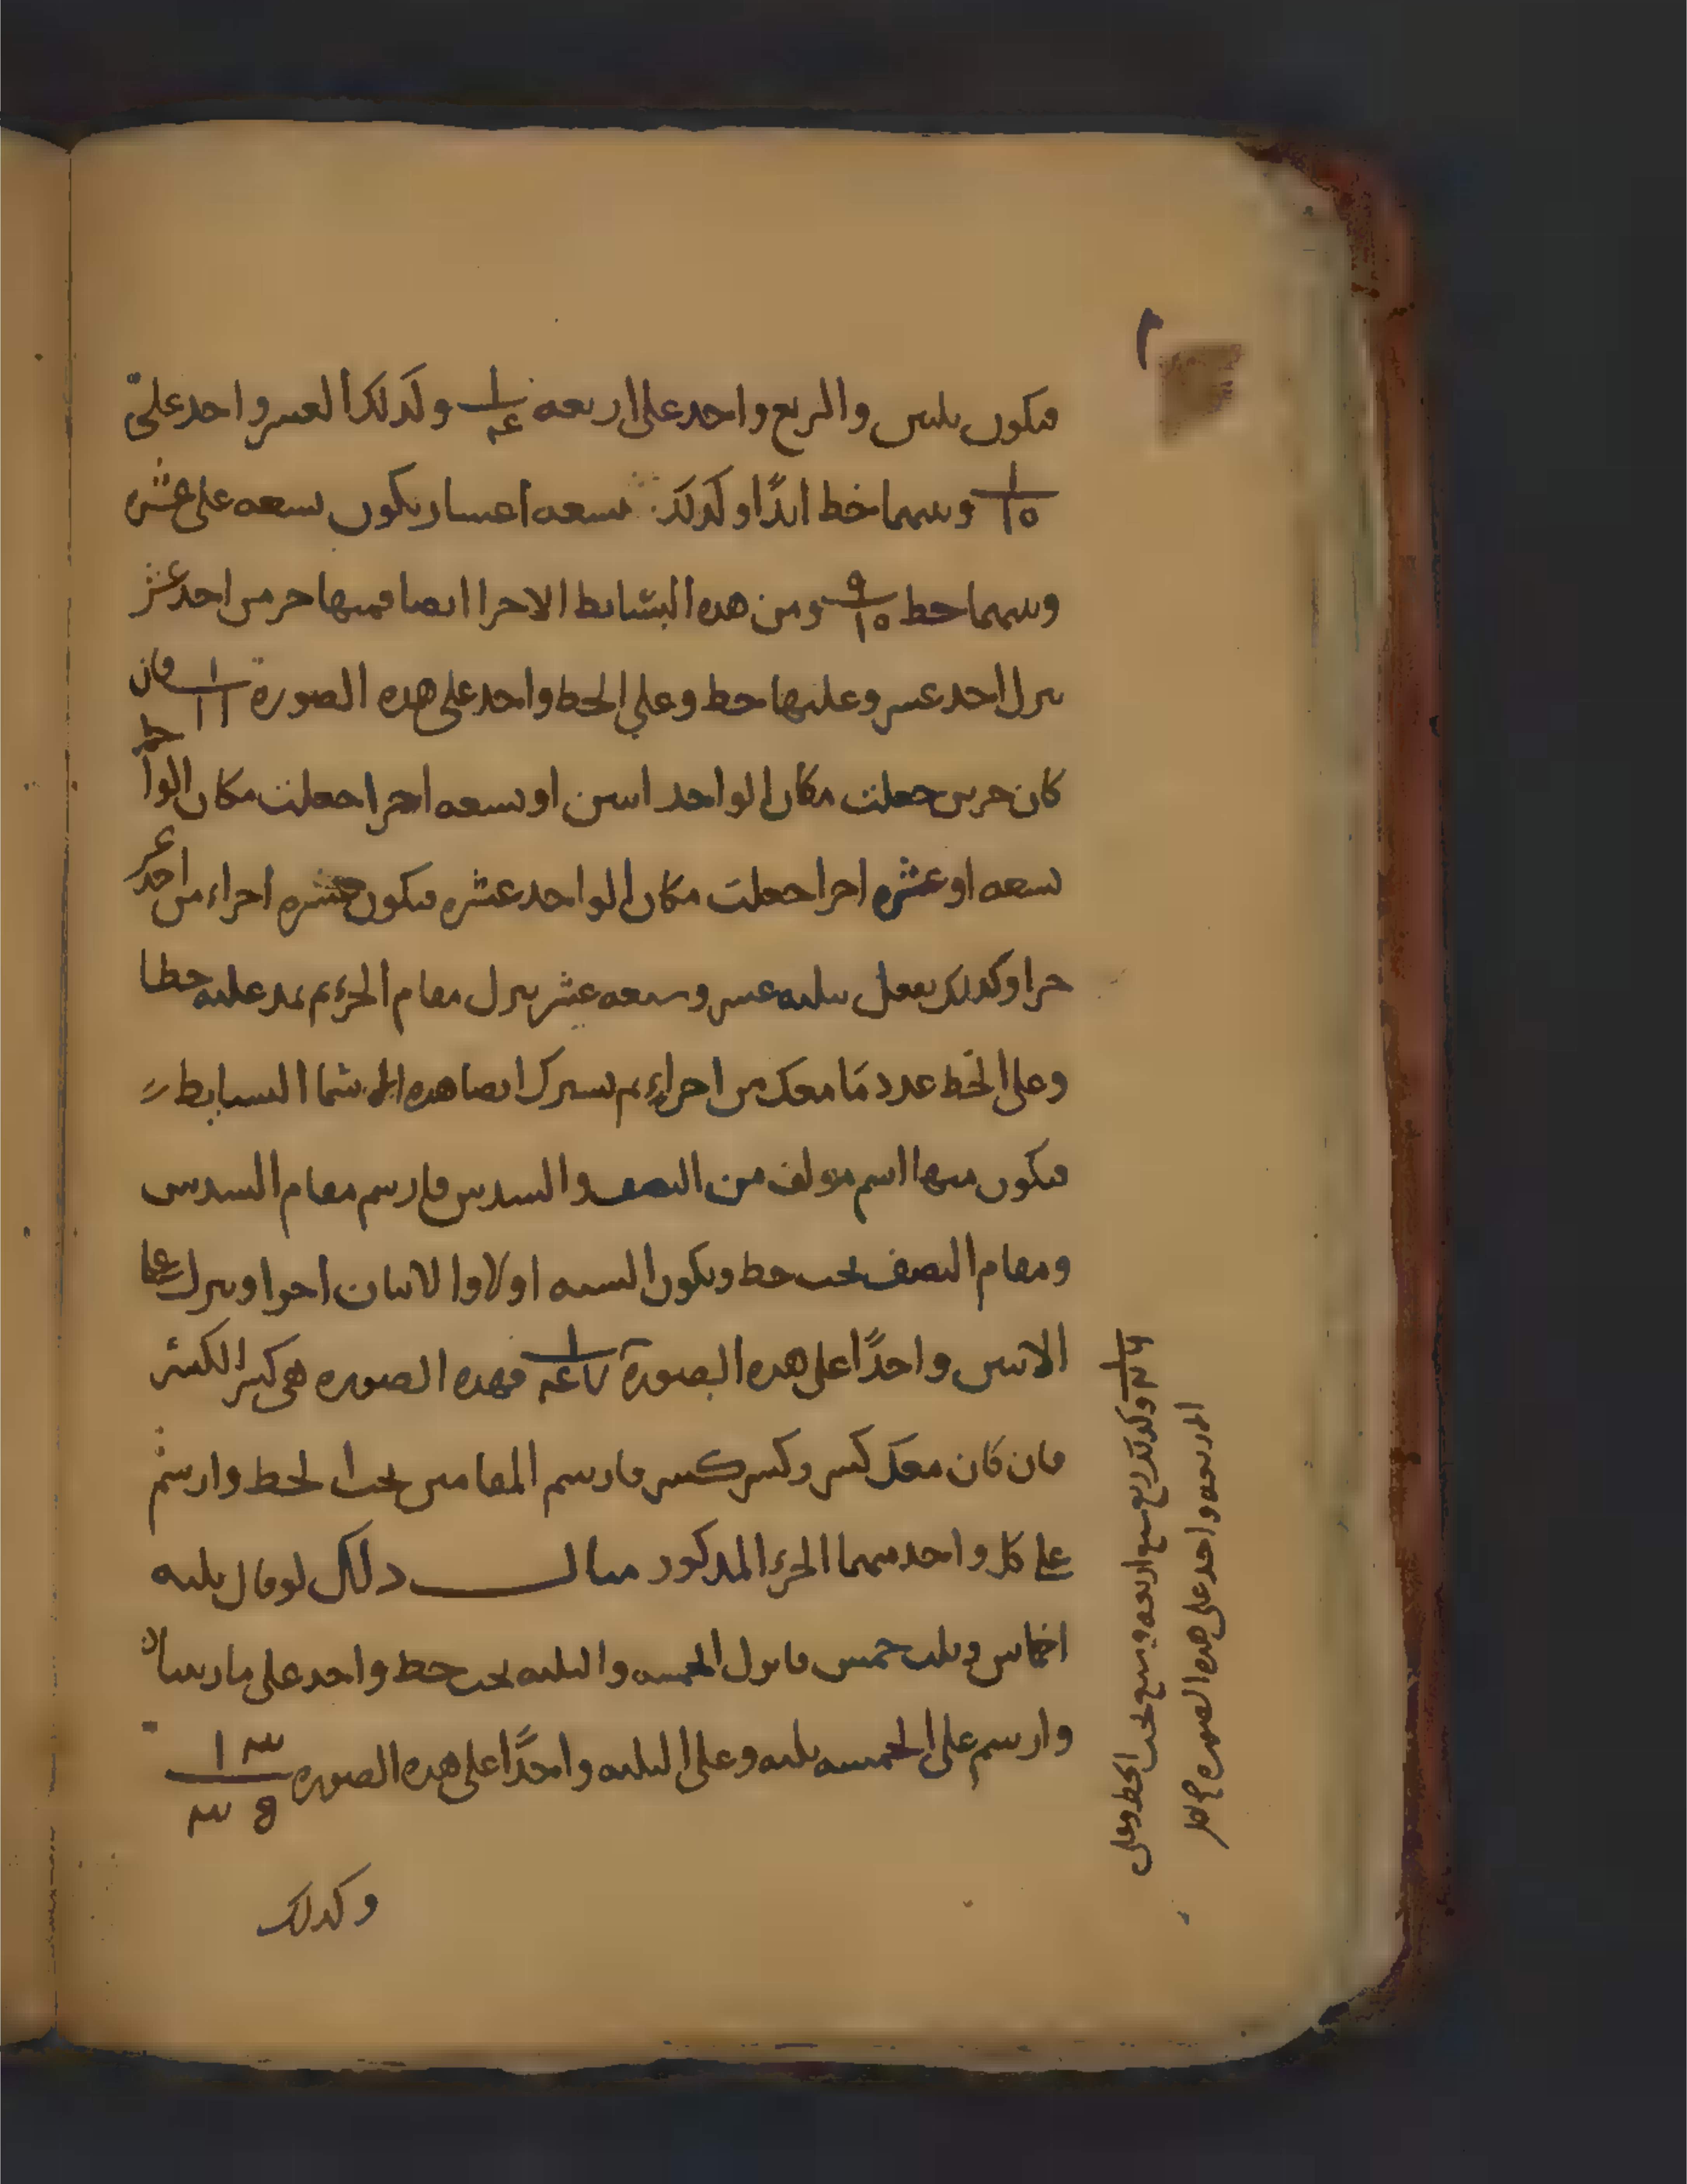 فيكون ثلثين والربع واحد على اربعه ١/٤ وكذلك العشر واحد على
١/١٥ وبينهما خط ابدًا وكذلك تسعه اعشار يكون تسعه على عشره
وبينهما خط ٩/١٥ ومن هذه البسائط الاجزا ايضا فمنها جز من احد عشر
ينزل احد عشر وعليها خط وعلى الخط واحد على هذه الصورة ١/١١ فان
كان جزين جعلت مكان الواحد اثنين او تسعه اجزا جعلت مكان الواحد
تسعه او عشره اجزا جعلت مكان الواحد عشره فيكون عشره اجزاء من احد عشر
جزا وكذلك يفعل بثلثه عشر وسبعه عشر ينزل مقام الجزء ثم يمد عليه خطا
وعلى الخط عدد ما معك من اجزاء ثم تشترك ايضا هذه الاسما البسايط
فيكون منها اسم مولف من النصف والسدس فارسم مقام السدس
ومقام النصف تحت خط ويكون السته اولا والاثنان اخرا وينزل على
الاثنين واحدًا على هذه الصورة فهذه الصوره هى كسر الكسر
فان كان معك كسر وكسر كسر فارسم المقامين تحت الخط وارسم
على كل واحد منهما الجزء المذكور مثال ذلك لو قال ثلثه
اخماس وثلث خمس فانزل الخمسه والثلثه تحت خط واحد على ما رتبنا
وارسم على الخمسه ثلثه وعلى الثلثه واحدًا على هذه الصوره ٣ ١/٥ ٣
وكذلك
وكذلك ربع سبع اربعه وسبع تحت الخط وعلى
الاربعه واحد على هذه الصوره